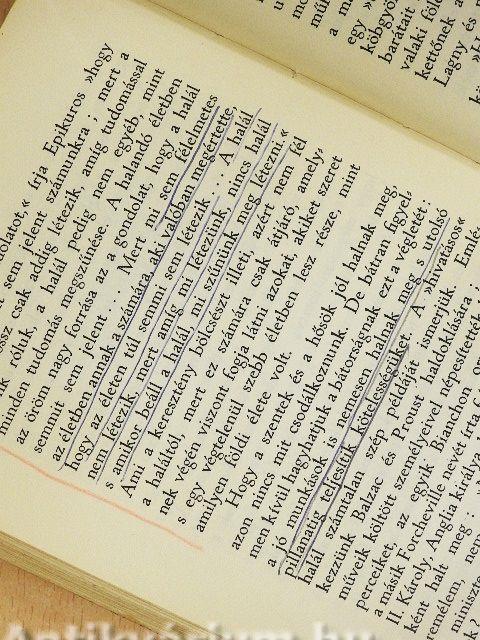 olatot,« írja Epikuros »hogy
sem jelent számunkra; mert a
ossz csak addig létezik, amíg tudomással
nk róluk, a halál pedig nem egyéb, mint
minden tudomás megszűnése. A halandó életben
az öröm nagy forrása az a gondolat, hogy a halál
semmit sem jelent ... Mert mi sem félelmetes
az életben annak a számára, aki valóban megértette,
hogy az életen túl semmi sem létezik ... A halál
nem létezik, mert amíg mi létezünk, nincs halál
s amikor beáll a halál, mi szűnünk meg létezni.«
Ami a keresztény bölcsészt illeti, azért nem fél
a haláltól, mert ez számára csak átjáró, amely-
nek végén viszont fogja látni azokat, akiket szeret
s egy végtelenül szebb életben lesz része, mint
amilyen földi élete volt.
Hogy a szentek és a hősök jól halnak meg,
azon nincs mit csodálkoznunk. De bátran figyel-
men kívül hagyhatjuk a bátorságnak ezt a végletét:
a jó munkások is nemesen halnak meg, s utolsó
pillanatig teljesítik kötelességüket. A »hivatásos«
halál számtalan szép példáját ismerjük. Emlé
kezzünk Balzac és Proust haldoklására;
művelk költött személyeivel népesítették
perceiket, az egyik Bianchon or
a másik Forcheville nevét írta f
II. Károly, Anglia királya
ként halt meg: »
emélem, nem
miniszte
nek
múl
a má
egy »
köbgyö
barátait
valaki föle
kettőnek a
Lagny és
»H
Antikvárium.hu